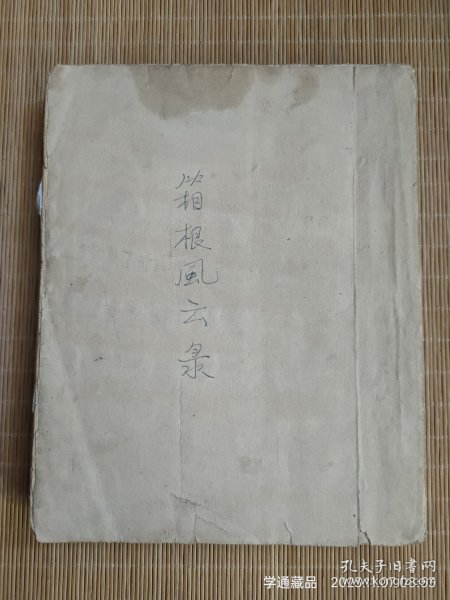 箱根風云录
孔夫子旧书网
学通藏品